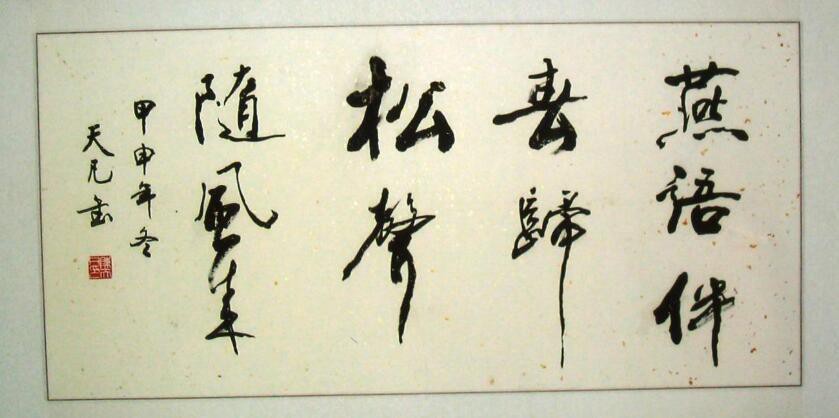 燕語伴
春歸
松聲
隨風来
甲申年冬
天